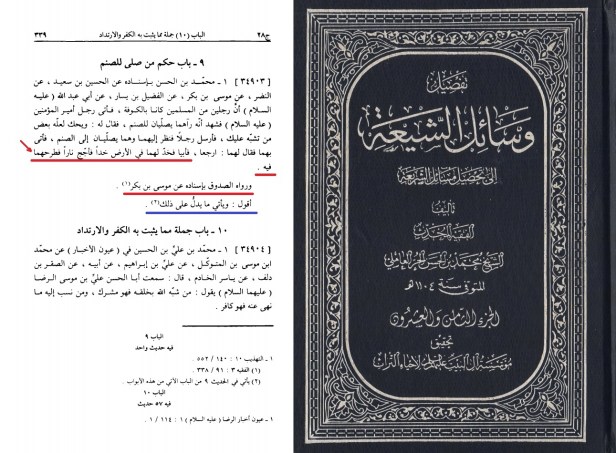 ج٢٨
الباب (١٠) جملة مما يثبت به الكفر والارتداد
٣٣٩
٩ ـ باب حكم من صلى للصنم
[٣٤٩٠٣] ١ ـ محمّد بن الحسن بإسناده عن الحسين بن سعيد ، عن
النضر ، عن موسى بن بكر ، عن الفضيل بن يسار ، عن أبي عبد الله (عليه
السلام) أن رجلين من المسلمين كانا بالكوفة ، فأتى رجل أمير المؤمنين
(عليه السلام) فشهد أنّه رآهما يصلّيان للصنم ، فقال له : ويحك لعلّه بعض
من تشبّه عليك ، فأرسل رجلًا فنظر إليهما وهما يصلّيان إلى الصنم ، فأتى
بهما فقال لهما : ارجعا ، فأبيا فخدّ لهما في الأرض خداً فأجّج ناراً فطرحهما
فيه .
ورواه الصدوق بإسناده عن موسى بن بكر(١) .
أقول : ويأتي ما يدلّ على ذلك(٢) .
١٠ ـ باب جملة مما يثبت به الكفر والارتداد
[٣٤٩٠٤] ١ ـ محمد بن عليّ بن الحسين في (عيون الأخبار) عن محمّد
ابن موسى بن المتوكّل ، عن عليّ بن إبراهيم ، عن أبيه ، عن الصقر بن
دلف ، عن ياسر الخادم ، قال : سمعت أبا الحسن عليّ بن موسى الرضا
(عليهما السلام) يقول : من شبّه الله بخلقه فهو مشرك ، ومن نسب إليه ما
نهى عنه فهو كافر .
الباب ٩
فيه حديث واحد
١ ـ التهذيب ١٠ : ١٤٠ / ٥٥٢ .
(١) الفقيه ٣ : ٩١ / ٣٣٨ .
(٢) يأتي في الحديث ٩ من الباب الآتي من هذه الأبواب .
الباب ١٠
فيه ٥٧ حديث
١ ـ عيون أخبار الرضا (عليه السلام) ١ : ١١٤ / ١ .
تفصيل
وسائل الشيعة
إلى تحصيل مسائل الشريعة
تأليف
الفقيه المحدث
الشيخ محمد بن الحسن الحر العاملي
المتوفى سنة ١١٠٤ هـ
الجزء الثامن والعشرون
تحقيق
مؤسسة آل البيت عليهم السلام لإحياء التراث